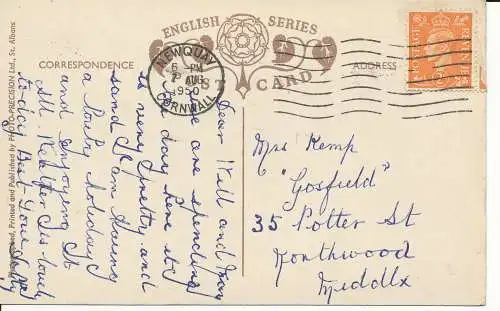 ENGLISH SERIES
POST CARD
CORRESPONDENCE
ADDRESS
NEWQUAY
6 - PM
AUG
1950
CORNWALL
Dear Will and May
We are spending
the day here it
is very pretty and
sand I am Having
a lovely Holiday
and enjoying it
All
to day Best Love
Mrs Kemp
"Gosfield"
35 Potter St
Northwood
Middlx
Printed and Published by PHOTO-PRECISION Ltd., St. Albans